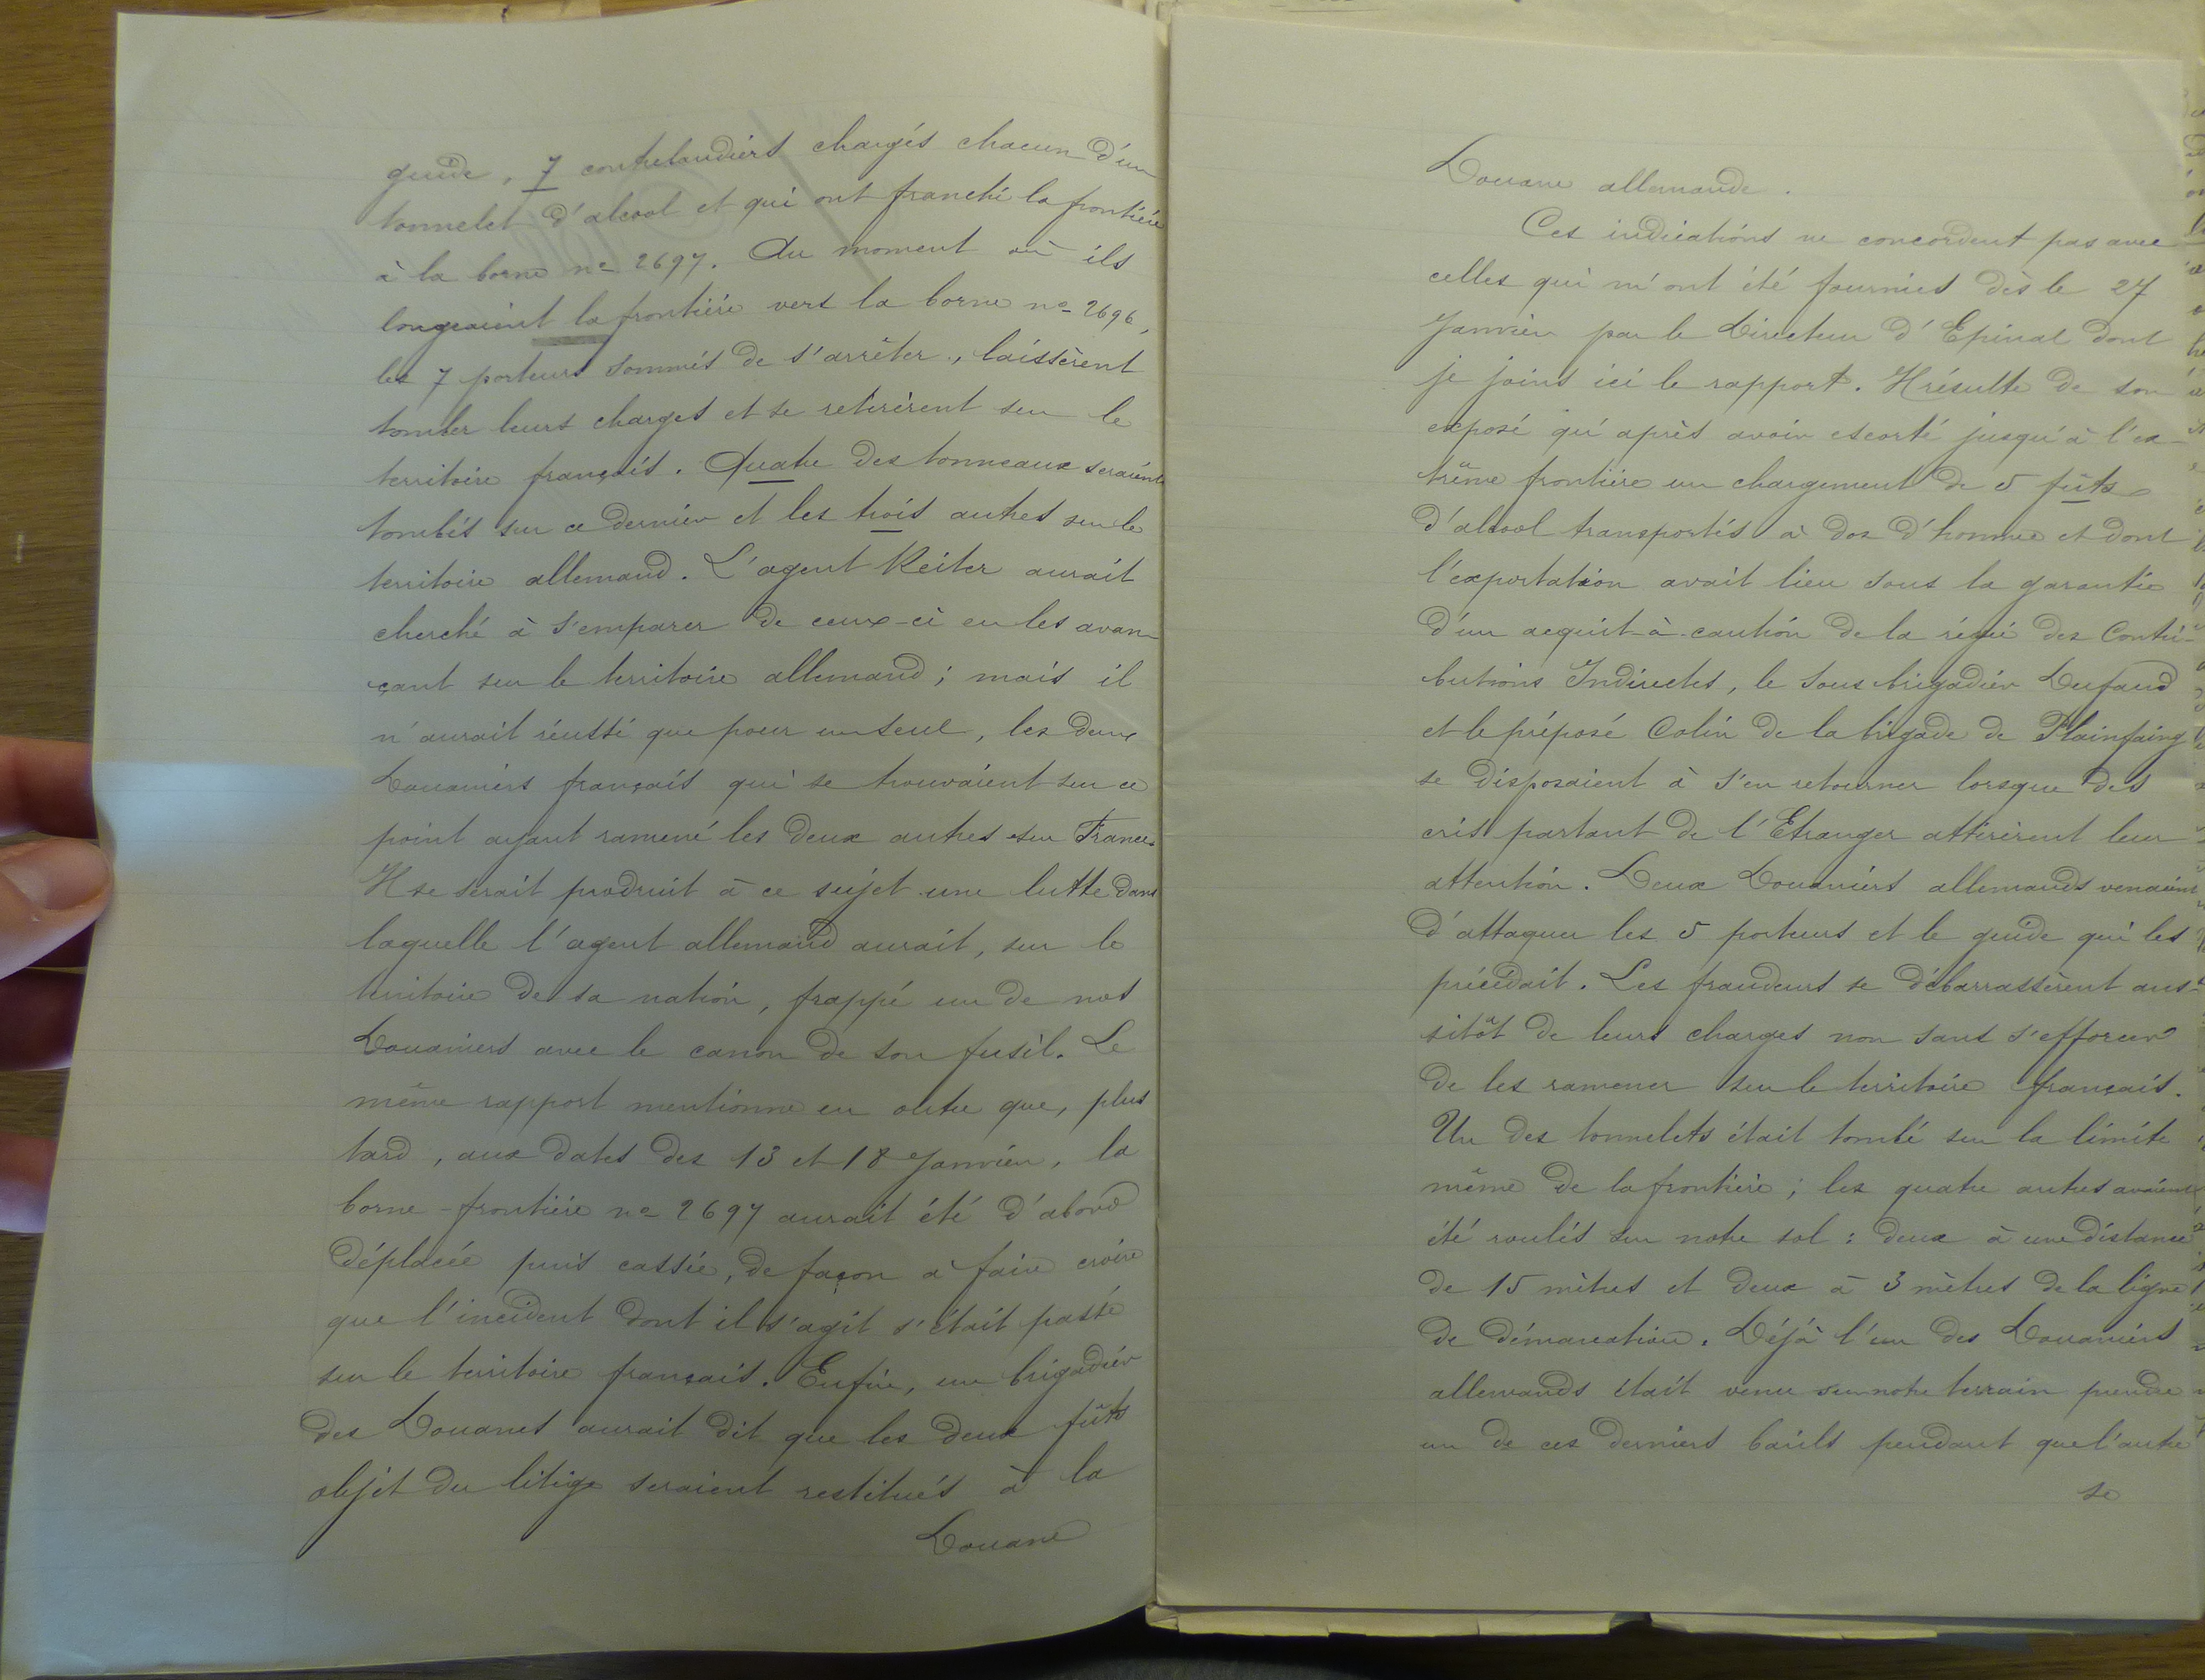 guide, 7 contrebandiers chargés chacun d'un
tonnelet d'alcool et qui ont franchi la frontière
à la borne no 2697. Au moment où ils
longeaient la frontière vers la borne no 2696,
les 7 porteurs sommés de s'arrêter, laissèrent
tomber leurs charges et se retirèrent sur le
territoire français. Quatre des tonneaux seraient
tombés sur ce dernier et les trois autres sur le
territoire allemand. L'agent Reiter aurait
cherché à s'emparer de ceux-ci en les avan-
çant sur le territoire allemand; mais il
n'aurait réussi que pour un seul, les deux
Douaniers français qui se trouvaient sur ce
point ayant ramené les deux autres sur France.
Il se serait produit à ce sujet une lutte dans
laquelle l'agent allemand aurait, sur le
territoire de sa nation, frappé un de nos
Douaniers avec le canon de son fusil. Le
même rapport mentionne en outre que, plus
tard, aux dates des 13 et 18 Janvier, la
borne-frontière no 2697 aurait été d'abord
déplacée puis cassée, de façon à faire croire
que l'incident dont il s'agit s'était passé
sur le territoire français. Enfin, un brigadier
des Douanes aurait dit que les deux fûts
objet du litige seraient restitués à la
Douane
Douane allemande.
Ces indications ne concordent pas avec
celles qui m'ont été fournies dès le 27
Janvier par le Directeur d'Epinal dont
je joins ici le rapport. Il résulte de son
exposé qu'après avoir escorté jusqu'à l'ex-
trême frontière un chargement de 5 fûts
d'alcool transportés à dos d'homme et dont
l'exportation avait lieu sous la garantie
d'un acquit-à-caution de la régie des Contri-
butions Indirectes, le sous brigadier Dufaud
et le préposé Colin de la brigade de Plainfaing
se disposaient à s'en retourner lorsque des
cris partant de l'Etranger attirèrent leur
attention. Deux Douaniers allemands venaient
d'attaquer les 5 porteurs et le guide qui les
précédait. Les fraudeurs se débarrassèrent aus-
sitôt de leurs charges non sans s'efforcer
de les ramener sur le territoire français.
Un des tonnelets était tombé sur la limite
même de la frontière; les quatre autres avaient
été roulés sur notre sol: deux à une distance
de 15 mètres et deux à 3 mètres de la ligne
de démarcation. Déjà l'un des Douaniers
allemands était venu sur notre terrain prendre
un de ces derniers barils pendant que l'autre
se